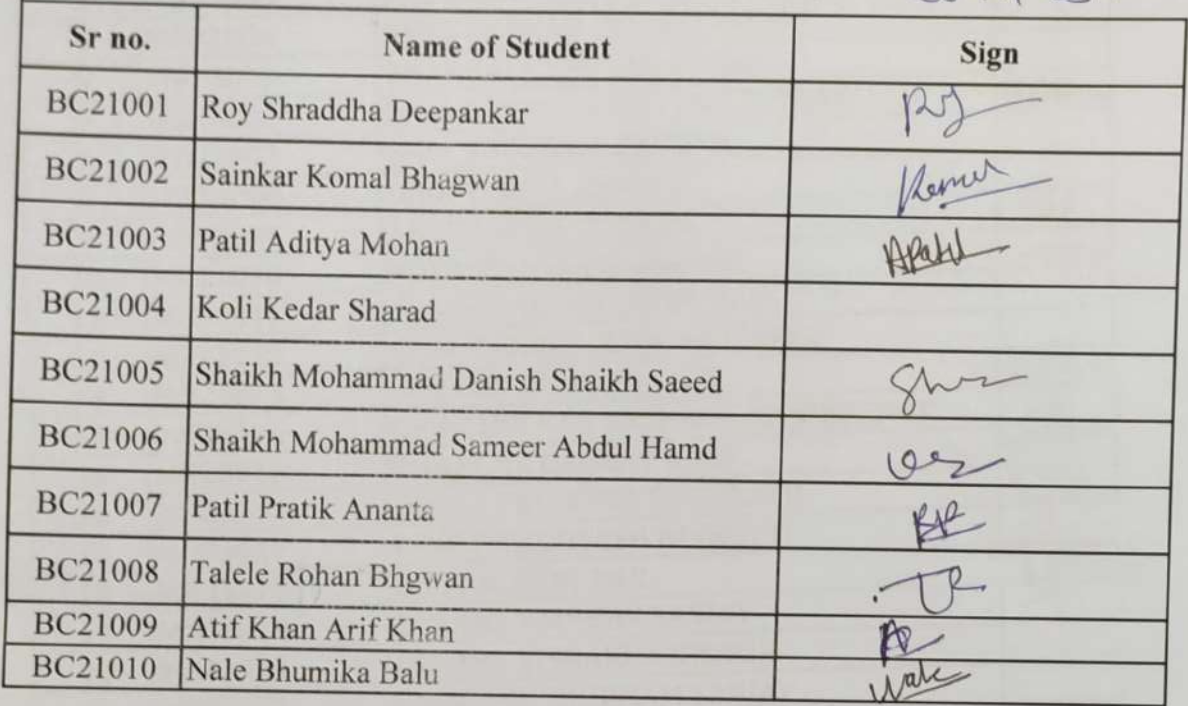 Sr no. Name of Student Sign
BC21001 Roy Shraddha Deepankar
BC21002 Sainkar Komal Bhagwan
BC21003 Patil Aditya Mohan APatil
BC21004 Koli Kedar Sharad
BC21005 Shaikh Mohammad Danish Shaikh Saeed
BC21006 Shaikh Mohammad Sameer Abdul Hamd
BC21007 Patil Pratik Ananta
BC21008 Talele Rohan Bhgwan
BC21009 Atif Khan Arif Khan
BC21010 Nale Bhumika Balu